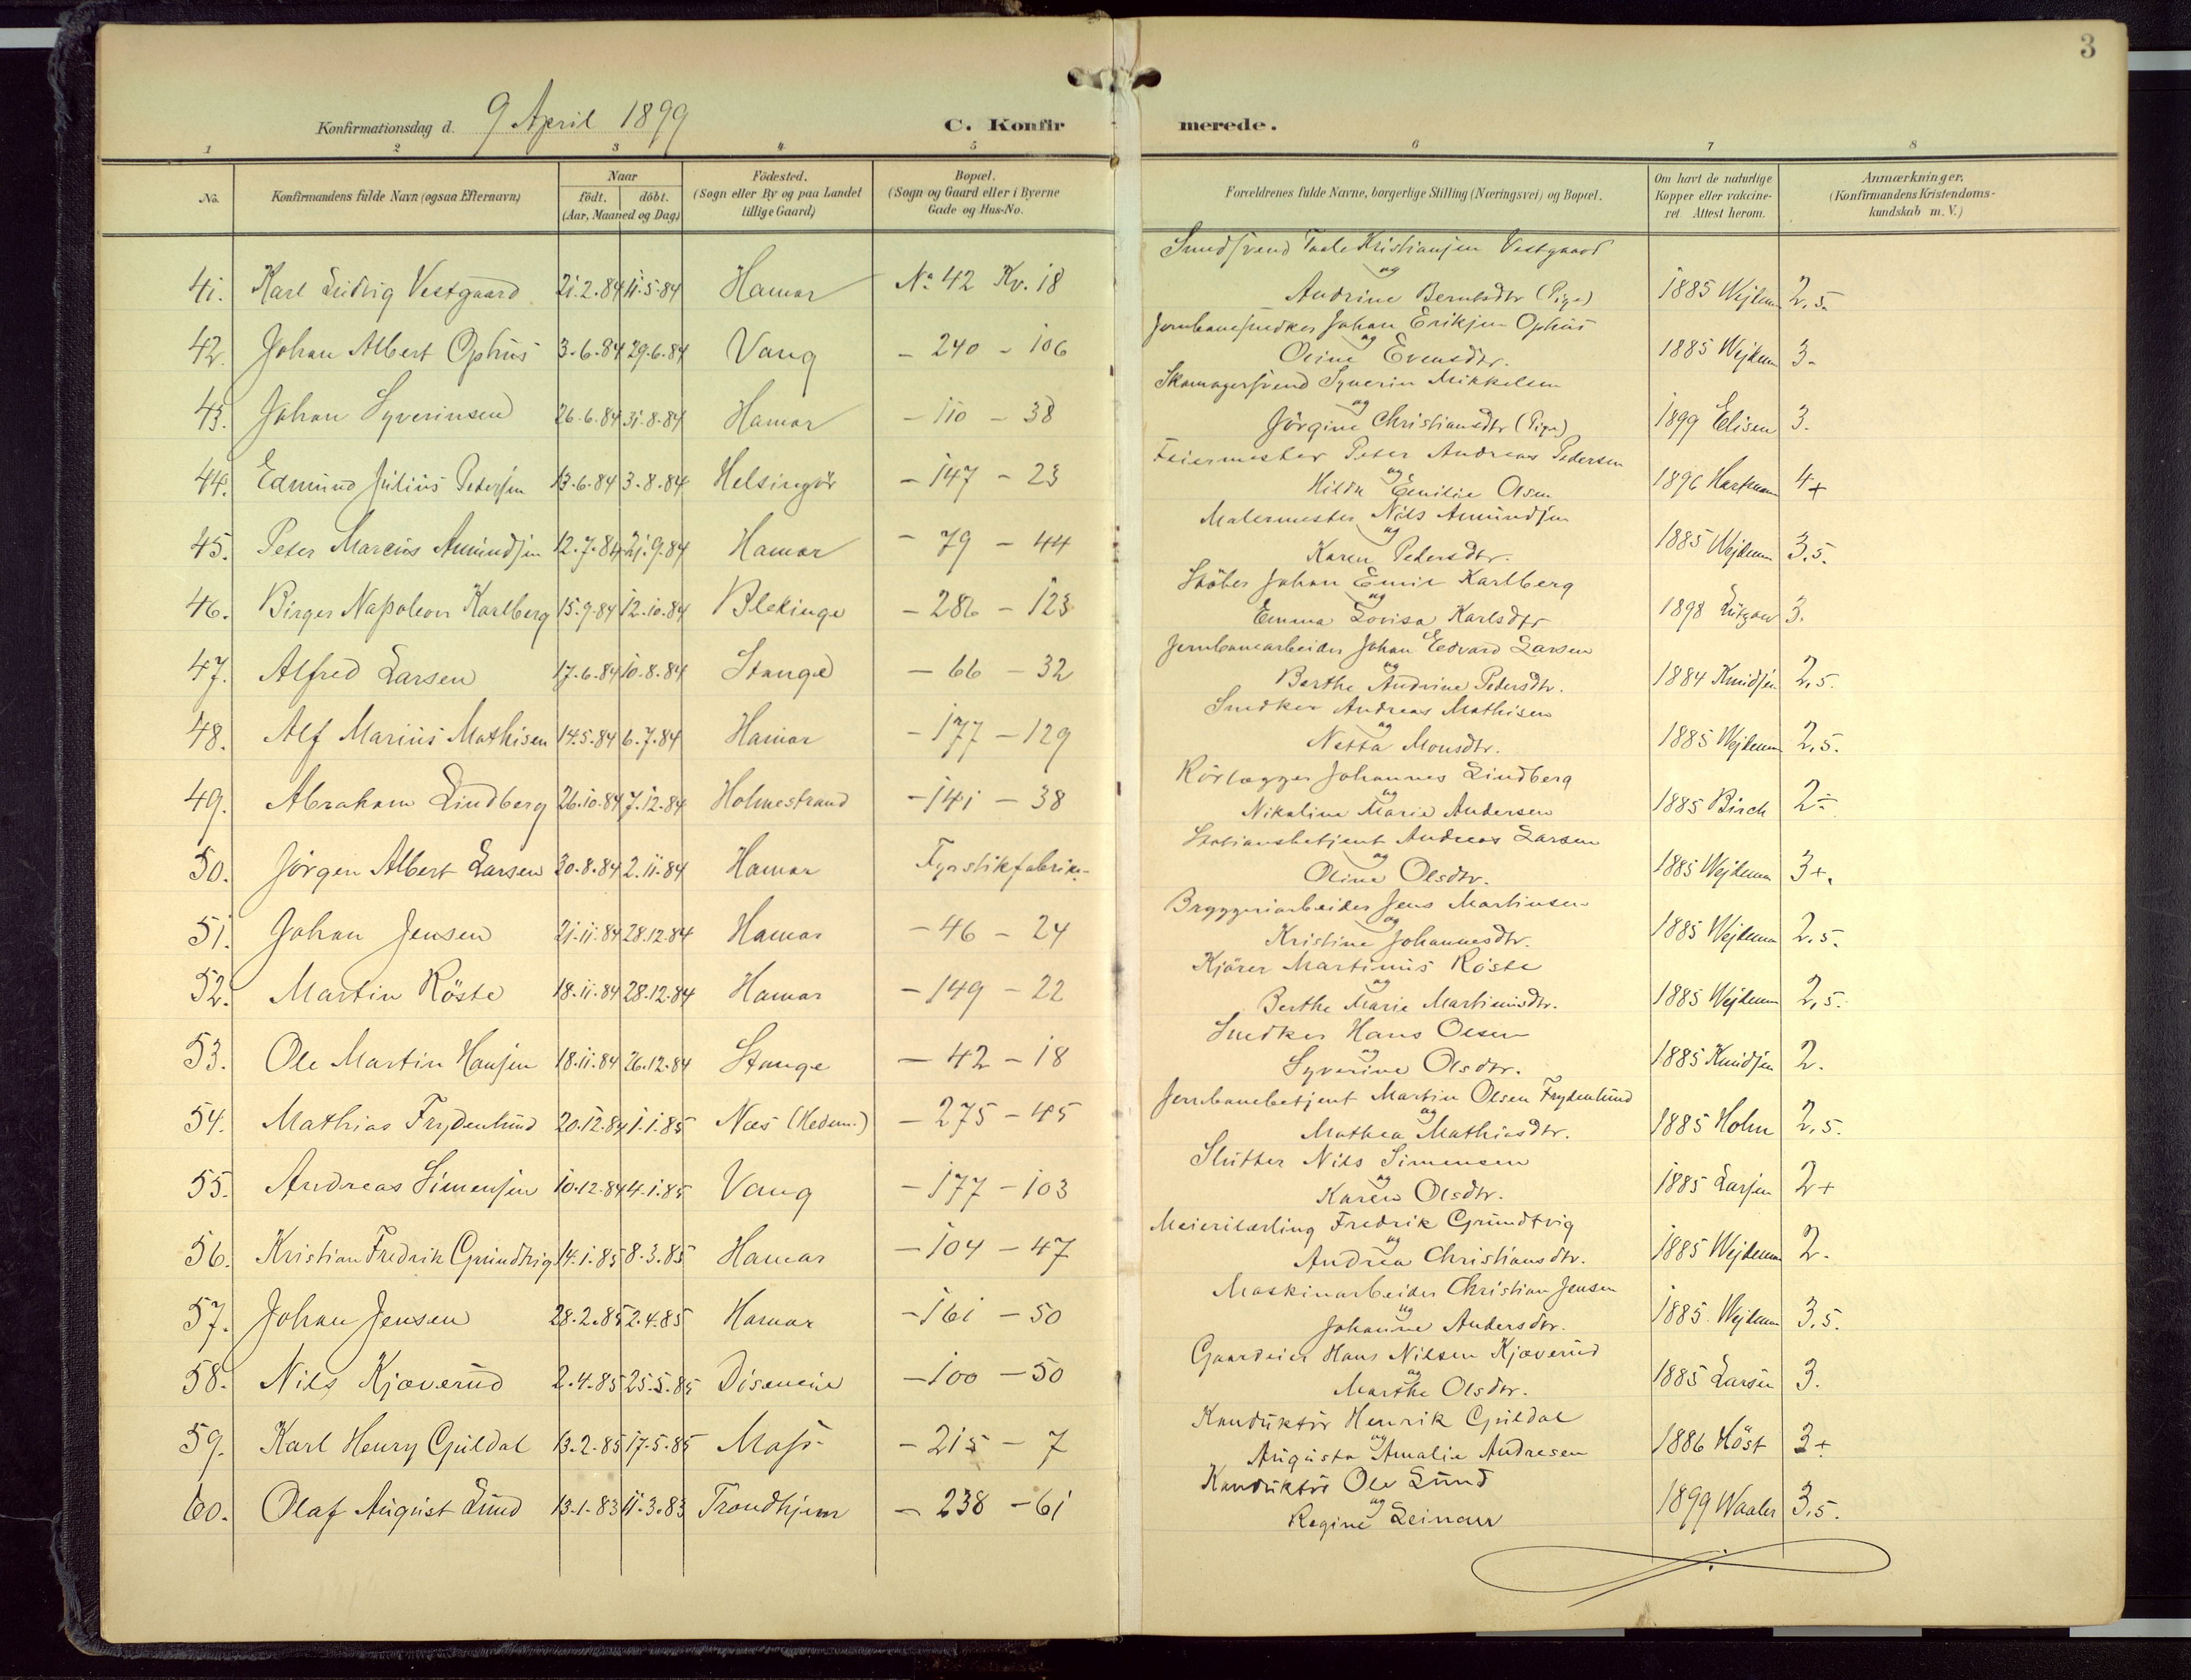 3
Konfirmationsdag d. 9 April 1899
C. Konfir merede.
1 2 3 4 5 6 7 8
No.
Konfirmandens fulde Navn (ogsaa Efternavn)
Naar
födt. döbt.
(Aar, Maaned og Dag.)
Födested.
(Sogn eller By og paa Landet
tillige Gaard)
Bopæl.
(Sogn og Gaard eller i Byerne
Gade og Hus-No.
Forældrenes fulde Navne, borgerlige Stilling (Næringsvei) og Bopæl.
Om havt de naturlige
Kopper eller vakcine-
ret Attest herom.
Anmærkninger.
(Konfirmandens Kristendoms-
kundskab m. V.)
Smedsvend Kristiansen Vestgaard
og
41. Karl Ludvig Vestgaard 21.2.84 11.5.84 Hamar No 42 Kv. 18 Andrine Berntsdtr (Pige) 1885 Wejdem 2,5.
Jernbanesnedker Johan Eriksen Ophus
og
42. Johan Albert Ophus 3.6.84 29.6.84 Vang – 240 – 106 Oline Evensdtr. 1885 Wejdem 3-
Skomagersvend Syverin Mikkelsen
og
43. Johan Syverinsen 26.6.84 31.8.84 Hamar – 110 – 38 Jörgine Christiansdtr (Pige) 1899 Elisen 3.
Feiermester Peter Andreas Pedersen
og
44. Edmund Julius Pedersen 13.6.84 3.8.84 Helsingör – 147 – 23 Hilda Emilie Olsen 1896 Hartmann 4+
Malermester Nils Amundsen
og
45. Peter Marcius Amundsen 12.7.84 21.9.84 Hamar – 79 – 44 Karen Pedersdtr. 1885 Wejdem 3,5.
Stöber Johan Emil Karlberg
og
46. Birger Napoleon Karlberg 15.9.84 12.10.84 Blekinge – 286 – 123 Emma Lovisa Karlsdtr 1898 3.
Jernbanearbeider Johan Edvard Larsen
og
47. Alfred Larsen 17.6.84 10.8.84 Stange – 66 – 32 Berthe Andrine Pedersdtr. 1884 Knudsen 2,5.
Snedker Andreas Mathisen
og
48. Alf Marius Mathisen 14.5.84 6.7.84 Hamar – 177 – 129 Netta Monsdtr. 1885 Wejdem 2,5.
Rörlægger Johannes Lindberg
og
49. Abraham Lindberg 26.10.84 7.12.84 Holmestrand – 141 – 38 Nikoline Marie Andersen 1885 Birch 2-
Stationsbetjent Andreas Larsen
og
50. Jörgen Albert Larsen 30.8.84 2.11.84 Hamar Fyrstikfabrik. Oline Olsdtr. 1885 Wejdem 3+.
Bryggeriarbeider Jens Martinsen
og
51. Johan Jensen 21.11.84 28.12.84 Hamar – 46 – 24 Kristine Johannesdtr. 1885 Wejdem 2,5.
Kjörer Martinus Röste
og
52. Martin Röste 18.11.84 28.12.84 Hamar – 149 – 22 Berthe Marie Martinusdtr. 1885 Wejdem 2,5.
Snedker Hans Olsen
og
53. Ole Martin Hansen 18.11.84 26.12.84 Stange – 42 – 18 Syverine Olsdtr. 1885 Knudsen 2.
Jernbanebetjent Martin Olsen Frydenlund
og
54. Mathias Frydenlund 20.12.84 1.1.85 Næs (Hedem.) – 275 – 45 Mathea Mathiasdtr. 1885 Holm 2,5.
Slutter Nils Simensen
og
55. Andreas Simensen 10.12.84 4.1.85 Vang – 177 – 103 Karen Olsdtr. 1885 Larsen 2+
Meierilærling Fredrik Grundtvig
og
56. Kristian Fredrik Grundtvig 14.1.85 8.3.85 Hamar – 104 – 47 Andrea Christiansdtr. 1885 Wejdem 2.
Maskinarbeider Christian Jensen
og
57. Johan Jensen 28.2.85 2.4.85 Hamar – 161 – 50 Johanne Andersdtr. 1885 Wejdem 3,5.
Gaardeier Hans Nilsen Kjæverud
og
58. Nils Kjæverud 2.4.85 25.5.85 – 100 – 50 Marthe Olsdtr. 1885 Larsen 3.
Konduktör Henrik Guldal
og
59. Karl Henry Guldal 13.2.85 17.5.85 Moss – 215 – 7 Augusta Amalie Andresen 1886 Höst 3+
Konduktör Ole Lund
og
60. Olaf August Lund 13.1.83 11.3.83 Trondhjem – 238 – 61 Regine Leinan 1899 Waaler 3,5.